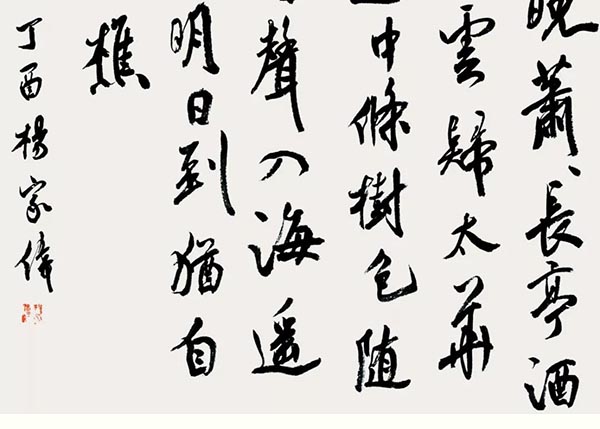 晚蕭〻長亭酒
雲歸太華
中條樹色随
聲入海遥
明日到猶自
樵
丁酉楊家偉